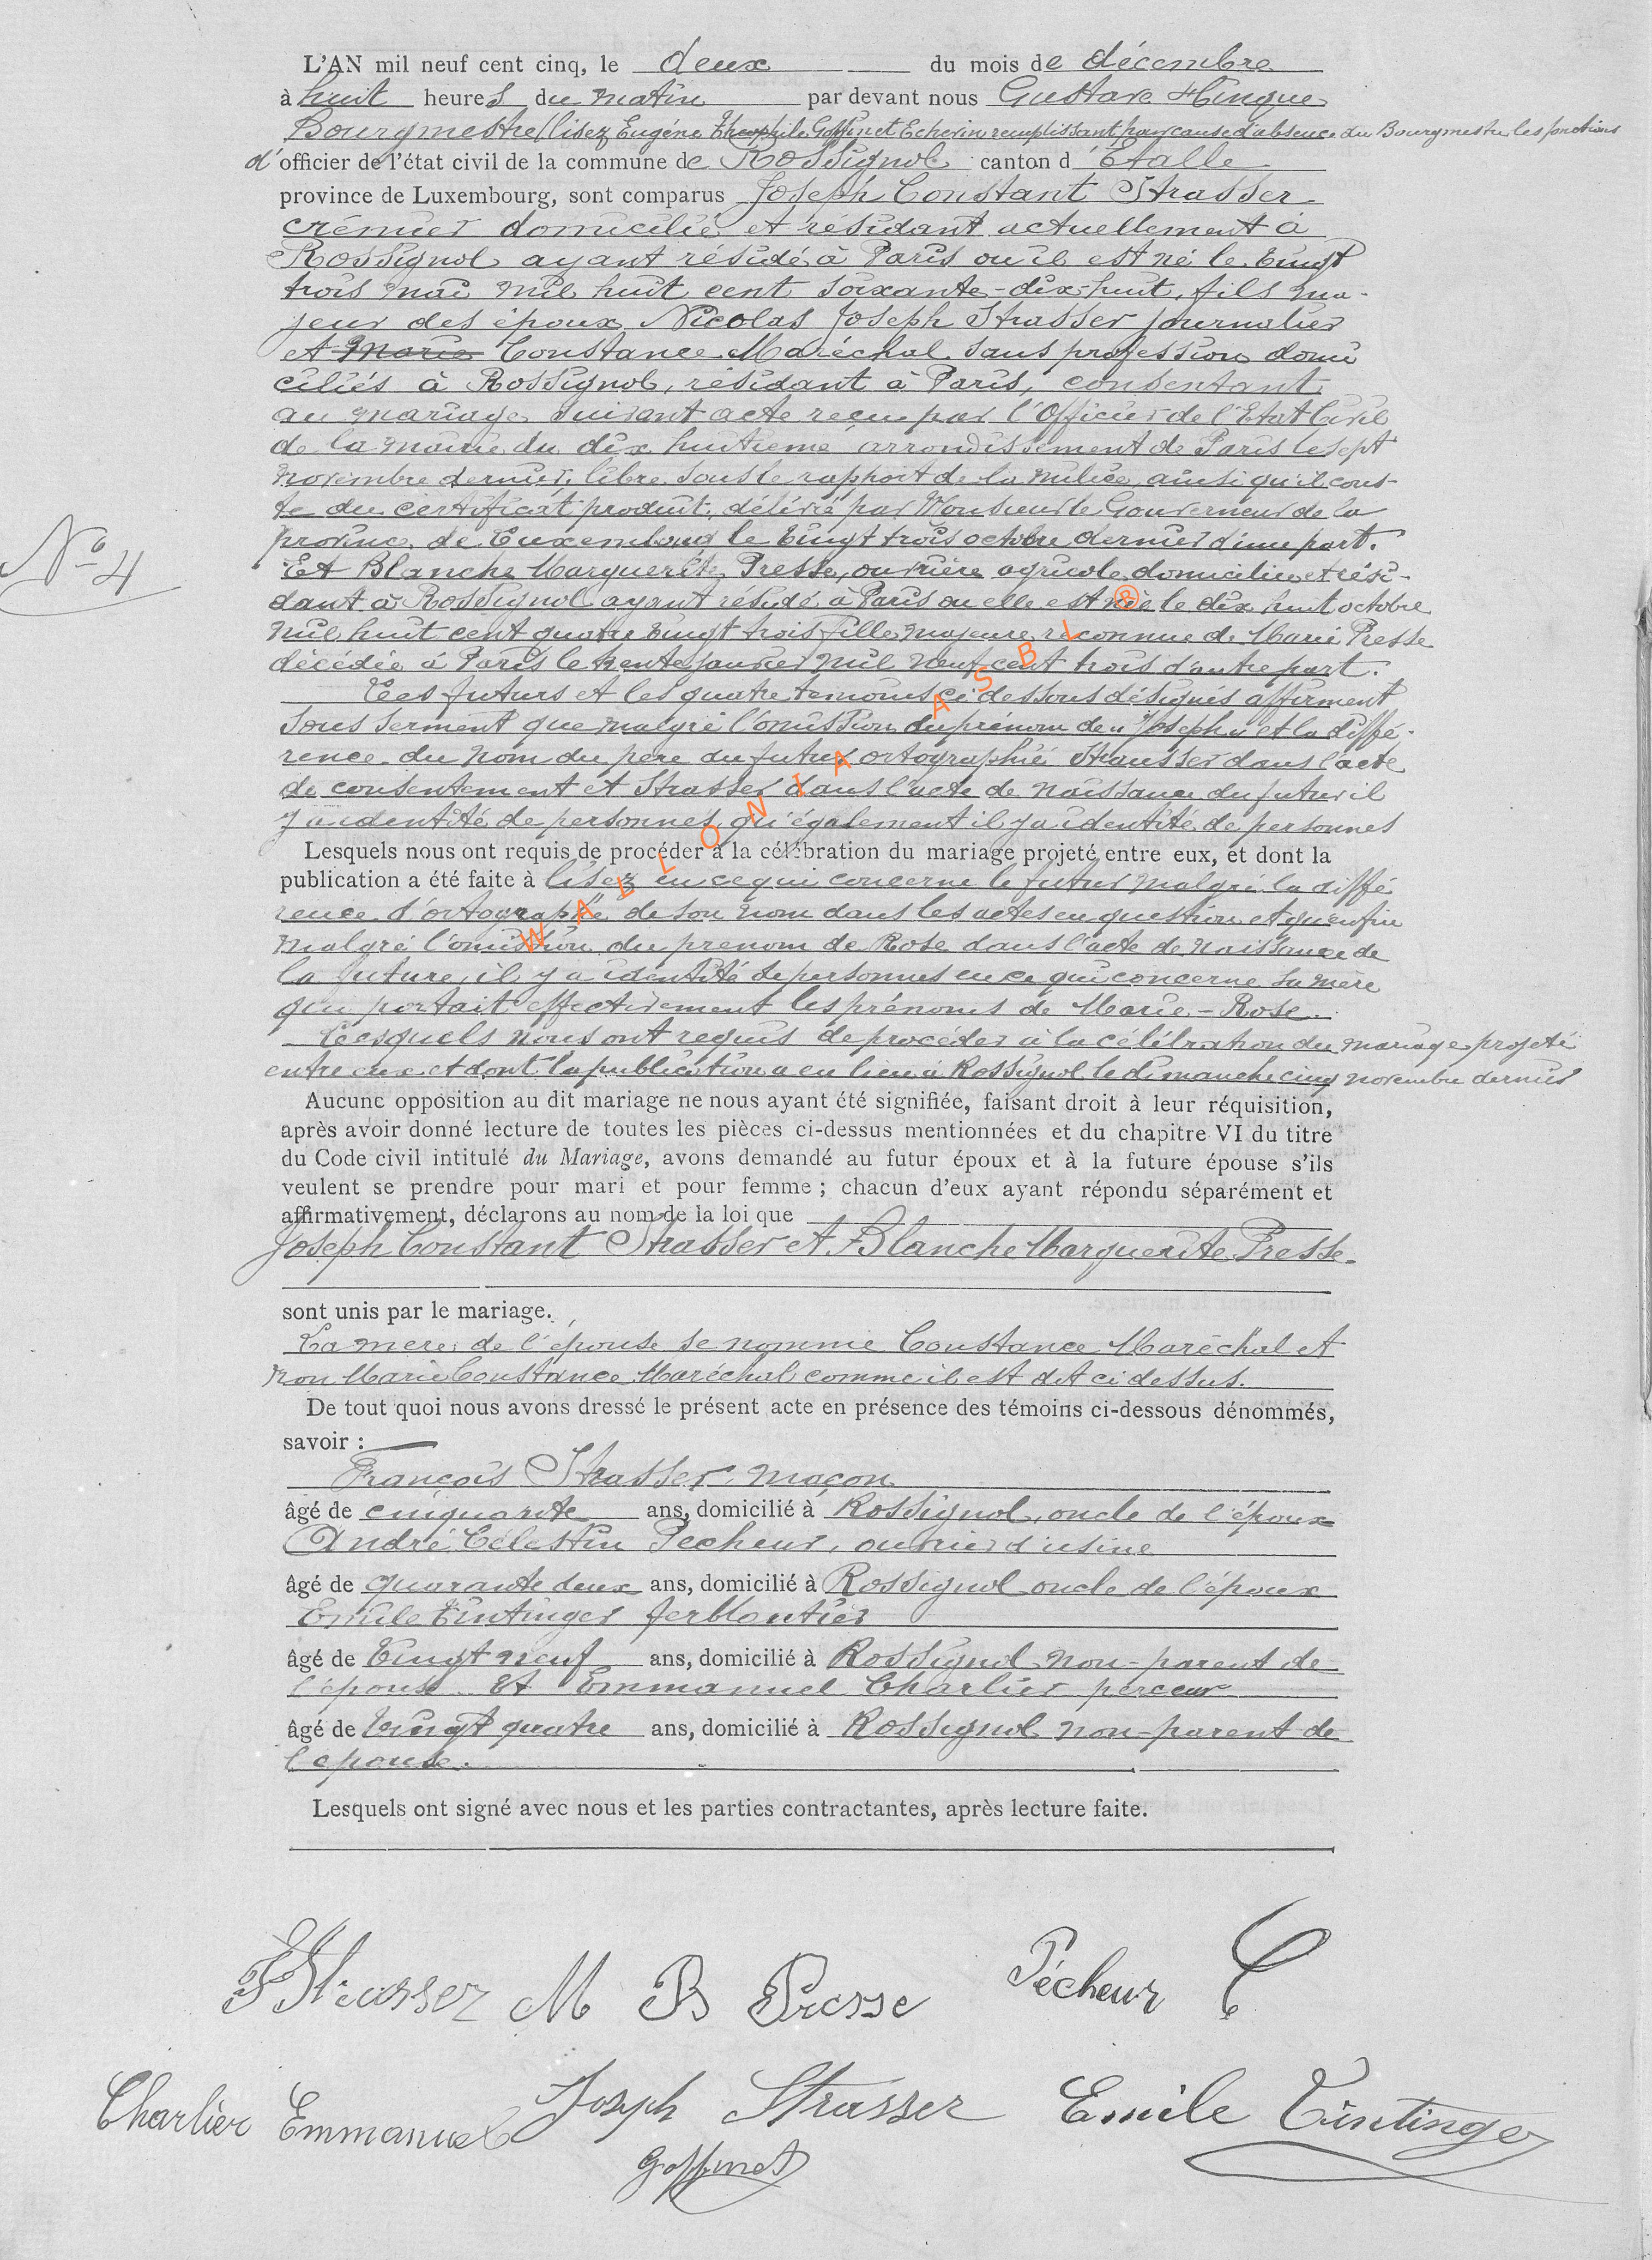 L'AN mil neuf cent cinq, le deux du mois de décembre
à huit heures du matin par devant nous Gustave Hinque
Bourgmestre (lisez Eugène Théophile Goffinet Echevin remplissant pour cause d'absence du Bourgmestre les fonctions
d'officier de l'état civil de la commune de Rossignol canton d'Etalle
province de Luxembourg, sont comparus Joseph Constant Strasser
crémier domicilié et résidant actuellement à
Rossignol ayant résidé à Paris où il est né le vingt
trois mai mil huit cent soixante-dix-huit, fils ma-
jeur des époux Nicolas Joseph Strasser journalier
et Marie Constance Maréchal sans profession domi
ciliés à Rossignol, résidant à Paris, consentant
au mariage suivant acte reçu par l'Officier de l'Etat Civil
de la mairie du dix huitième arrondissement de Paris le sept
novembre dernier, libre sous le rapport de la milice, ainsi qu'il cons-
te du certificat produit, délivré par Monsieur le Gouverneur de la
province de Luxembourg le vingt trois octobre dernier d'une part.
N° 4
Et Blanche Marguerite Presse, ouvrière agricole domiciliée et rési-
dant à Rossignol ayant résidé à Paris où elle est née le dix huit octobre
mil huit cent quatre vingt trois fille majeure reconnue de Marie Presse
décédée à Paris le trente janvier mil neuf cent trois d'autre part.
Les futurs et les quatre témoins ci dessous désignés affirment
sous serment que malgré l'omission du prénom de "Joseph" et la diffé-
rence du nom du père du futur ortographié Strausser dans l'acte
de consentement et Strasser dans l'acte de naissance du futur il
y a identité de personnes, qu'également il y a identité de personnes
Lesquels nous ont requis de procéder à la célébration du mariage projeté entre eux, et dont la
publication a été faite à lisez en ce qui concerne le futur malgré la diffé
rence d'ortographe de son nom dans les actes en question et qu'enfin
malgré l'omission du prenom de Rose dans l'acte de naissance de
la future, il y a identité de personnes en ce qui concerne sa mère
qui portait effectivement les prénoms de Marie-Rose.
Lesquels nous ont requis de procéder à la célébration du mariage projeté
entre eux et dont la publication a eu lieu à Rossignol le dimanche cinq novembre dernier
Aucune opposition au dit mariage ne nous ayant été signifiée, faisant droit à leur réquisition,
après avoir donné lecture de toutes les pièces ci-dessus mentionnées et du chapitre VI du titre
du Code civil intitulé du Mariage, avons demandé au futur époux et à la future épouse s'ils
veulent se prendre pour mari et pour femme ; chacun d'eux ayant répondu séparément et
affirmativement, déclarons au nom de la loi que
Joseph Constant Strasser et Blanche Marguerite Presse.
sont unis par le mariage.
La mère de l'épouse se nomme Constance Maréchal et
non Marie Constance Maréchal comme il est dit ci dessus.
De tout quoi nous avons dressé le présent acte en présence des témoins ci-dessous dénommés,
savoir :
François Strasser, maçon
âgé de cinquante ans, domicilié à Rossignol, oncle de l'époux
André Célestin Pecheur, ouvrier d'usine
âgé de quarante deux ans, domicilié à Rossignol oncle de l'époux
Emile Tintinger ferblantier
âgé de vingt neuf ans, domicilié à Rossignol non-parent de
l'épouse Et Emmanuel Charlier perceur
âgé de vingt quatre ans, domicilié à Rossignol non-parent de
l'épouse.
Lesquels ont signé avec nous et les parties contractantes, après lecture faite.
F Strasser M B Presse Pécheur C
Charlier Emmanuel Joseph Strasser Emile Tintinger
Goffinet
WALLONIA ASBL ®